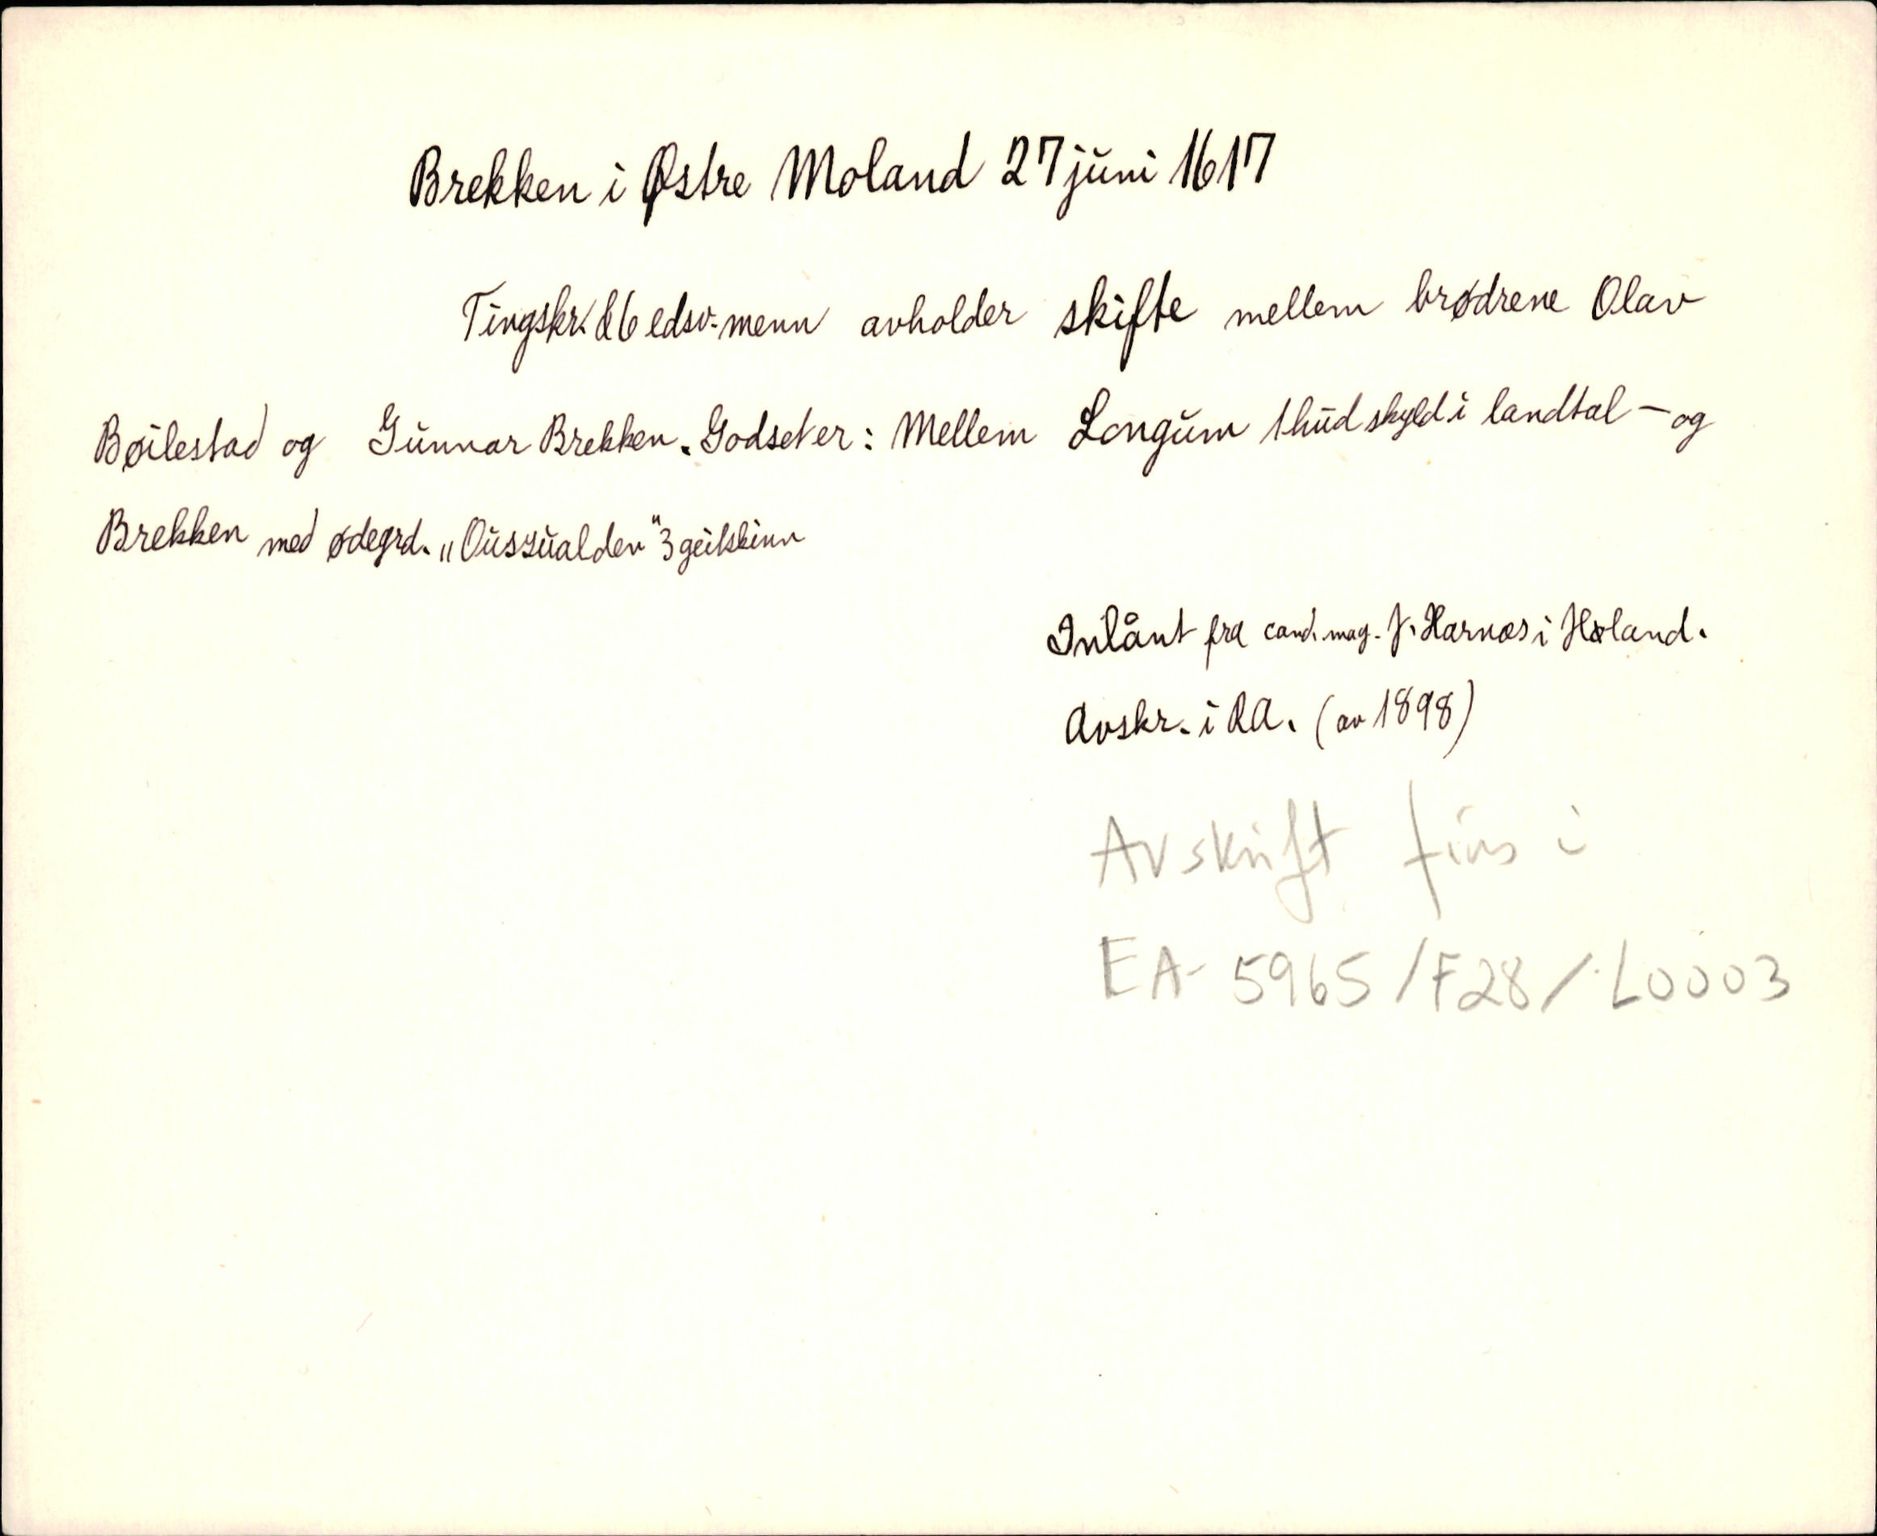 Brekken i Østre Moland 27 juni 1617
Tingskr. & 6 edsv. menn avholder skifte mellem brødrene Olav
Bøilestad og Gunnar Brekken. Godset er: Mellem Longum 1 hud skyld i landtal - og
Brekken med ødegrd. „Ouszualden" 3 geitskinn
Inlånt fra cand. mag. J. Harnæs i Høland.
Avskr. i RA. (av 1898)
Avskrift fins i
EA- 5965/F28/L0003